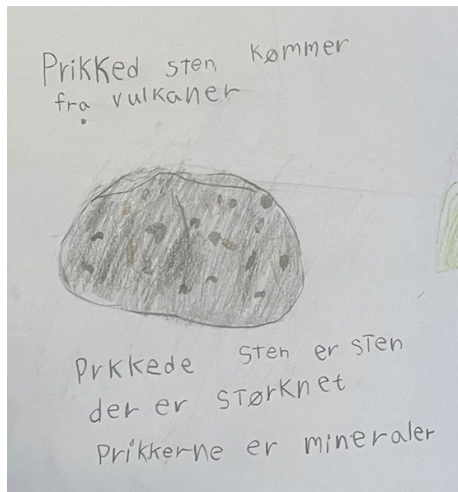 Prikked sten kømmer
fra vulkaner
Prkkede sten er sten
der er størknet
Prikkerne er mineraler